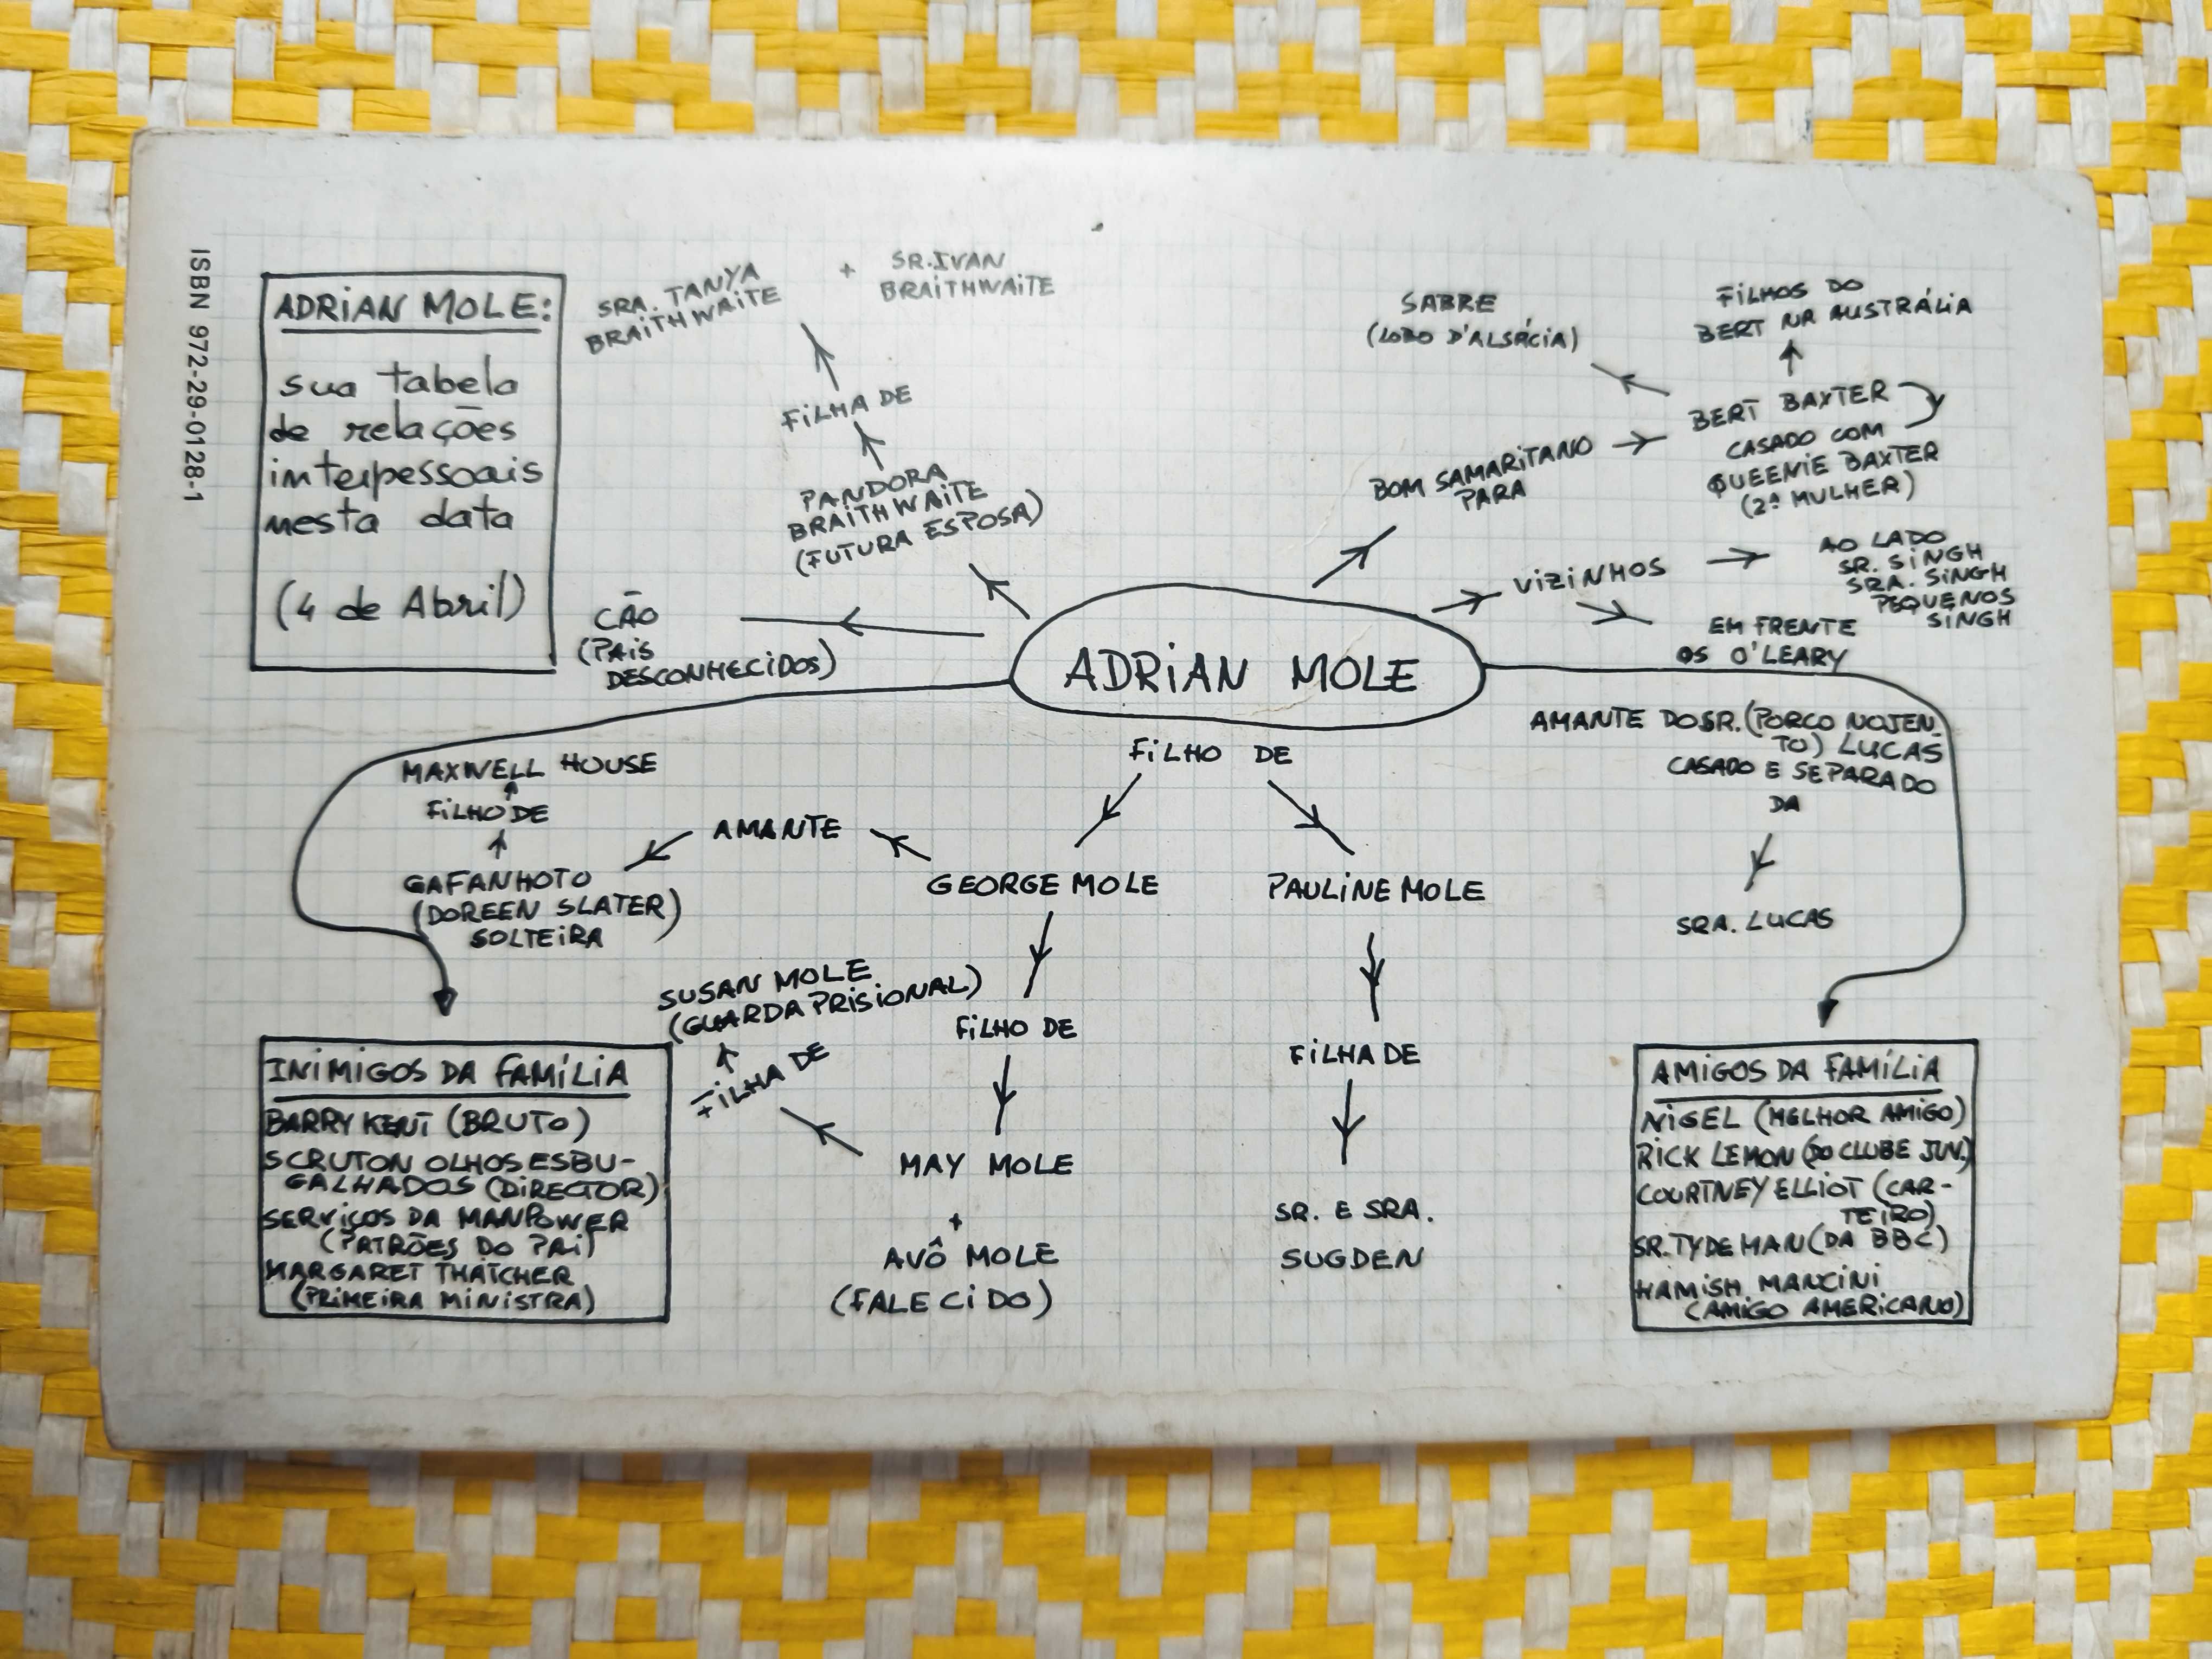 ISBN 972-29-0128-1
ADRIAN MOLE:
sua tabela
de relações
interpessoais
nesta data
(4 de Abril)
SRA. TANYA
BRAITHWAITE
+
SR. IVAN
BRAITHWAITE
FILHA DE
PANDORA
BRAITHWAITE
(FUTURA ESPOSA)
CÃO
(PAIS
DESCONHECIDOS)
SABRE
(LOBO D'ALSÁCIA)
FILHOS DO
BERT NA AUSTRÁLIA
BERT BAXTER
CASADO COM
QUEENIE BAXTER
(2ª MULHER)
BOM SAMARITANO
PARA
VIZINHOS
AO LADO
SR. SINGH
SRA. SINGH
PEQUENOS
SINGH
EM FRENTE
OS O'LEARY
ADRIAN MOLE
FILHO DE
MAXWELL HOUSE
FILHO DE
GAFANHOTO
(DOREEN SLATER)
SOLTEIRA
AMANTE
GEORGE MOLE
PAULINE MOLE
AMANTE DO SR. (PORCO NOJEN-
TO) LUCAS
CASADO E SEPARADO
DA
SRA. LUCAS
SUSAN MOLE
(GUARDA PRISIONAL)
FILHA DE
FILHO DE
MAY MOLE
+
AVÔ MOLE
(FALECIDO)
FILHA DE
SR. E SRA.
SUGDEN
INIMIGOS DA FAMÍLIA
BARRY KENT (BRUTO)
SCRUTON OLHOS ESBU-
GALHADOS (DIRECTOR)
SERVIÇOS DA MANPOWER
(PATRÕES DO PAI)
MARGARET THATCHER
(PRIMEIRA MINISTRA)
AMIGOS DA FAMÍLIA
NIGEL (MELHOR AMIGO)
RICK LEMON (DO CLUBE JUV.)
COURTNEY ELLIOT (CAR-
TEIRO)
SR. TYDEMAN (DA BBC)
HAMISH MANCINI
(AMIGO AMERICANO)